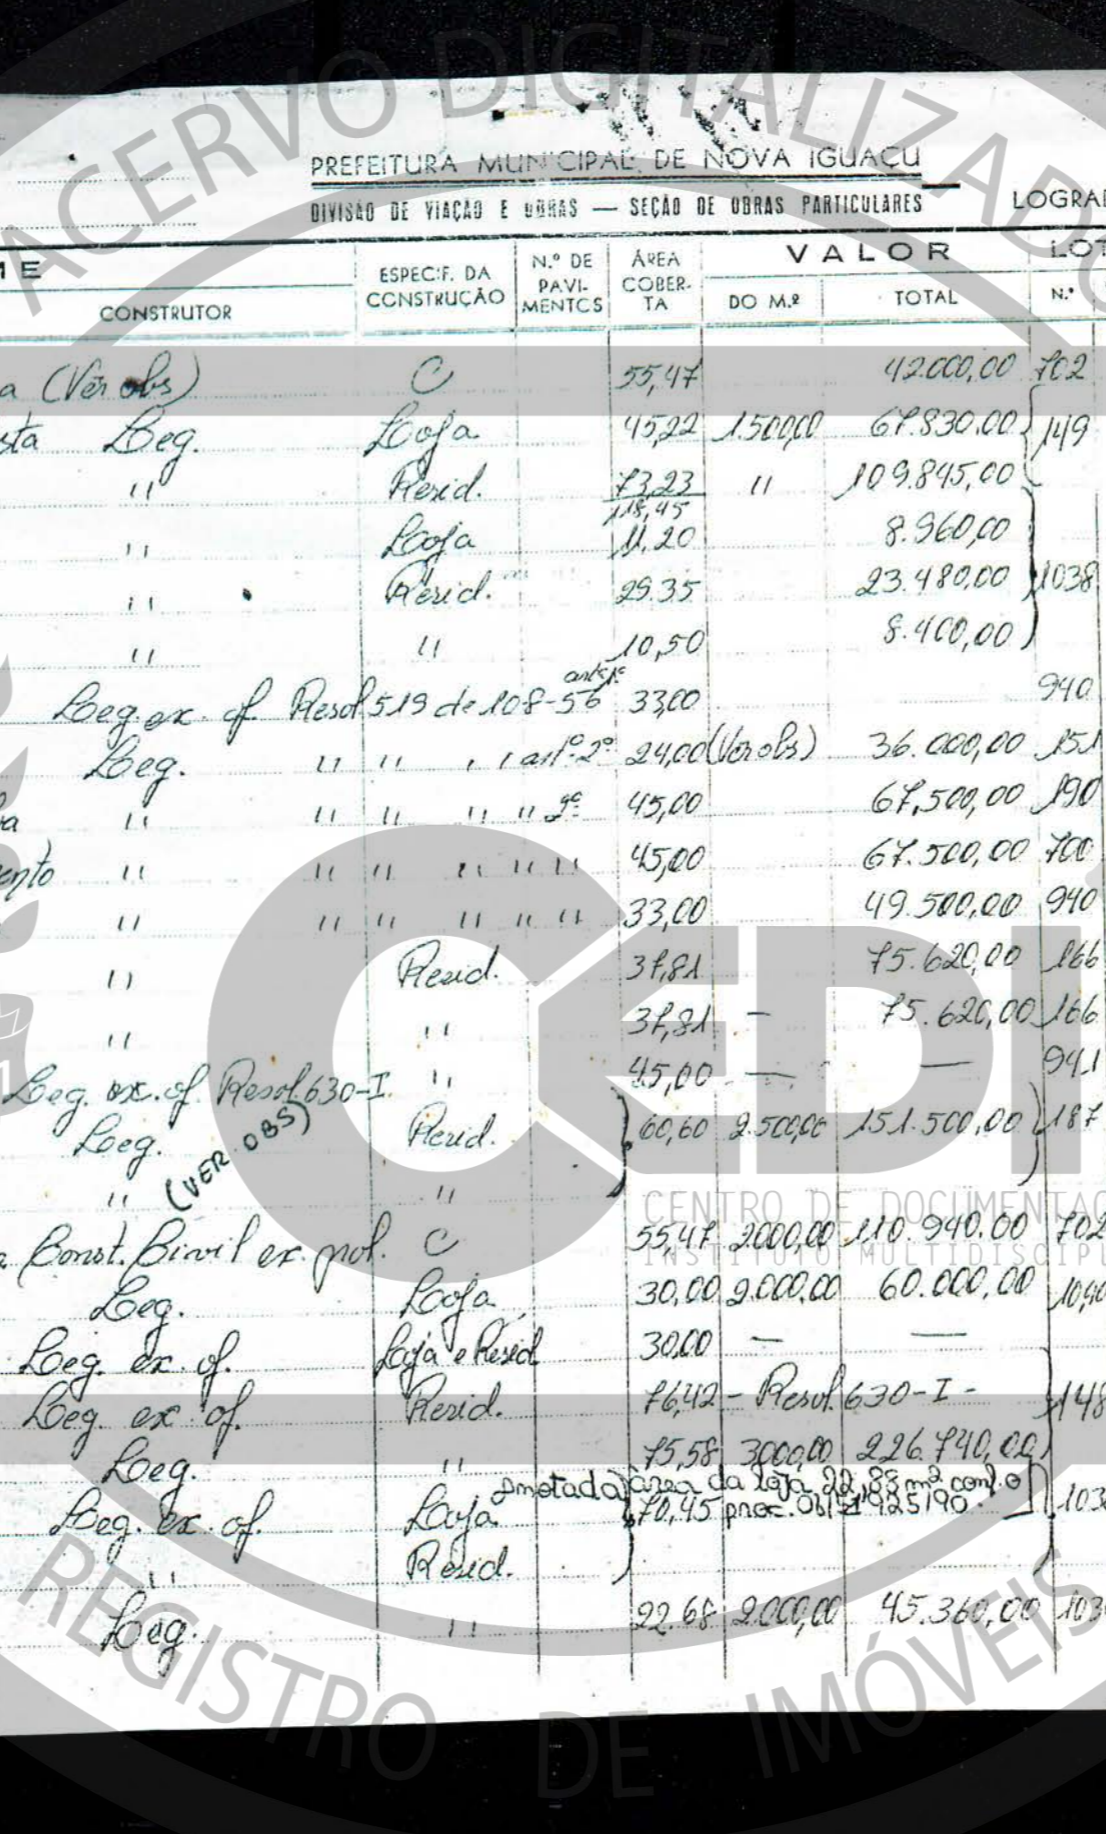 ACERVO DIGITALIZADO
PREFEITURA MUNICIPAL DE NOVA IGUAÇU
DIVISÃO DE VIAÇÃO E OBRAS — SEÇÃO DE OBRAS PARTICULARES LOGRAD
ME ESPECIF. DA CONSTRUÇÃO N.º DE PAVIMENTOS ÁREA COBERTA VALOR LOT
CONSTRUTOR DO M.² TOTAL N.º
a (Ver obs) C 55,47 42.000,00 702
sta Leg. Loja 45,22 1.500,00 67.830,00 149
" Resid. 73,23 " 109.845,00
118,45
" Loja 11,20 8.960,00
" Resid. 29.35 23.480,00 1038
" " 10,50 8.400,00
Leg. ex. of. Resol 519 de 108-56 33,00 940
Leg. " " " " artº 2º 24,00 (Ver obs) 36.000,00 151
a " " " " " 2º 45,00 67.500,00 190
ento " " " " " " 45,00 67.500,00 700
" " " " " " 33,00 49.500,00 940
" Resid. 37,81 75.620,00 166
" " 37,81 — 75.620,00 166
Leg. ex. of. Resol. 630-I. " 45,00 — — 941
Leg. Resid. 60,60 2.500,00 151.500,00 187
" (VER OBS) "
a Const. Civil ex. C 55,47 2000,00 110.940.00 702
Leg. Loja 30,00 2.000,00 60.000,00 1040
Leg. ex. of. Loja e Resid 30,00 — —
Leg. ex of. Resid. 76,42 - Resol. 630-I - 148
Leg. " 75,58 3000,00 226.740,00
anotada área da loja 22,83 m² conf. o
Leg. ex. of. Loja 70,45 proc. 925190 103
" Resid.
Leg. " 22.68 2.000,00 45.360,00 103
CEDI
CENTRO DE DOCUMENTAÇ
INSTITUTO MULTIDISCIPL
REGISTRO DE IMÓVEIS